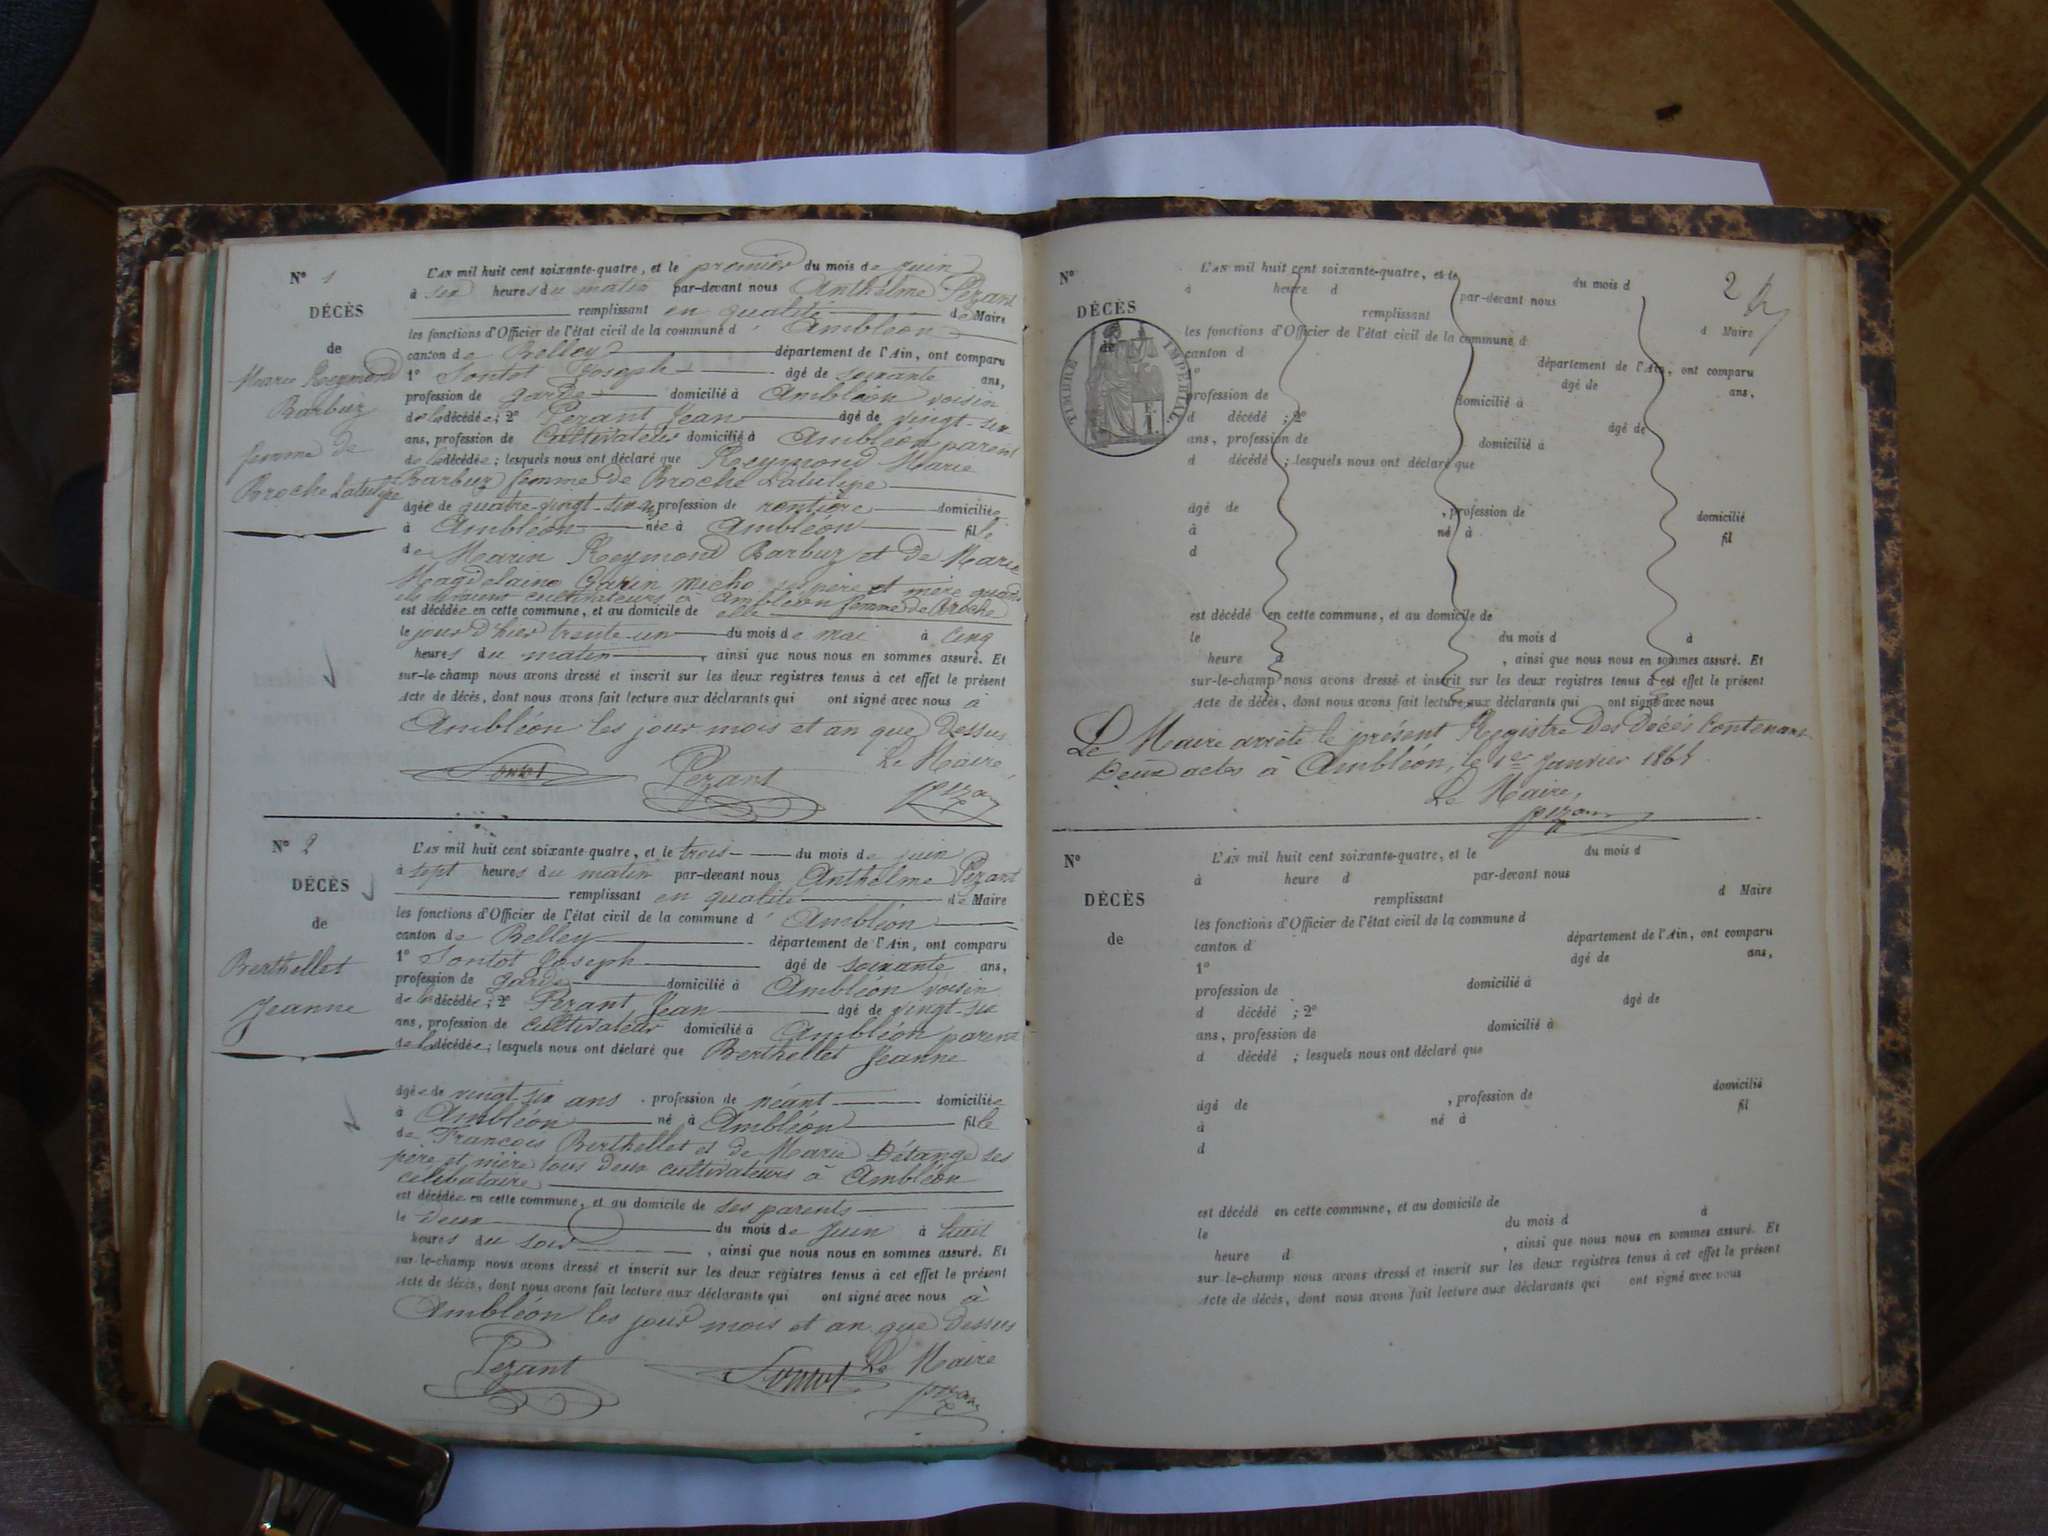 N° 1
DÉCÈS
de
Marie Reymond
Barbuz
femme de
Broche Latulipe
L'AN mil huit cent soixante-quatre, et le premier du mois de juin
à six heures du matin par-devant nous Anthelme Pezant
remplissant en qualité de Maire
les fonctions d'Officier de l'état civil de la commune d' Ambléon
canton de Belley département de l'Ain, ont comparu
1° Sontot Joseph âgé de soixante ans,
profession de garde domicilié à Ambléon voisin
de la décédée ; 2° Pezant Jean âgé de vingt-six
ans, profession de Cultivateur domicilié à Ambléon parent
de la décédée ; lesquels nous ont déclaré que Reymond Marie
Barbuz femme de Broche Latulipe
âgée de quatre-vingt profession de rentière domiciliée
à Ambléon née à Ambléon fille
de Marin Reymond Barbuz et de Marie
Magdelaine Garin Micho ses père et mère quand
ils vivaient cultivateurs à Ambléon femme de Broche
est décédée en cette commune, et au domicile de elle
le jour d'hier trente un du mois de mai à Cinq
heures du matin, ainsi que nous nous en sommes assuré. Et
sur-le-champ nous avons dressé et inscrit sur les deux registres tenus à cet effet le présent
Acte de décès, dont nous avons fait lecture aux déclarants qui ont signé avec nous à
Ambléon les jour mois et an que Dessus
Le Maire
Sontot Pezant pezan
N° 2
DÉCÈS
de
Berthellet
Jeanne
L'AN mil huit cent soixante-quatre, et le trois du mois de juin
à sept heures du matin par-devant nous Anthelme Pezant
remplissant en qualité de Maire
les fonctions d'Officier de l'état civil de la commune d' Ambléon
canton de Belley département de l'Ain, ont comparu
1° Sontot Joseph âgé de soixante ans,
profession de garde domicilié à Ambléon voisin
de la décédée ; 2° Pezant Jean âgé de vingt-six
ans, profession de cultivateur domicilié à Ambléon parent
de la décédée ; lesquels nous ont déclaré que Berthellet Jeanne
âgée de vingt-six ans, profession de néant domiciliée
à Ambléon né à Ambléon fille
de François Berthellet et de Marie Détange ses
père et mère tous deux cultivateurs à Ambléon
célibataire
est décédée en cette commune, et au domicile de ses parents
le deux du mois de Juin à huit
heures du soir, ainsi que nous nous en sommes assuré. Et
sur-le-champ nous avons dressé et inscrit sur les deux registres tenus à cet effet le présent
Acte de décès, dont nous avons fait lecture aux déclarants qui ont signé avec nous à
Ambléon les jour mois et an que dessus
Pezant Sontot Le Maire
pezan
2
N°
DÉCÈS
de
TIMBRE IMPÉRIAL
L'AN mil huit cent soixante-quatre, et le du mois d
à heure d par-devant nous
remplissant d Maire
les fonctions d'Officier de l'état civil de la commune d
canton d département de l'Ain, ont comparu
1° âgé de ans,
profession de domicilié à
d décédé ; 2° âgé de
ans, profession de domicilié à
d décédé ; lesquels nous ont déclaré que
âgé de , profession de domicilié
à né à fil
d
est décédé en cette commune, et au domicile de
le du mois d à
heure d , ainsi que nous nous en sommes assuré. Et
sur-le-champ nous avons dressé et inscrit sur les deux registres tenus à cet effet le présent
Acte de décès, dont nous avons fait lecture aux déclarants qui ont signé avec nous
Le Maire arrête le présent Registre Des Décés Contenant
Deux actes à Ambléon, le 1er Janvier 1865
Le Maire,
pezan
N°
DÉCÈS
de
L'AN mil huit cent soixante-quatre, et le du mois d
à heure d par-devant nous
remplissant d Maire
les fonctions d'Officier de l'état civil de la commune d
canton d département de l'Ain, ont comparu
1° âgé de ans,
profession de domicilié à
d décédé ; 2° âgé de
ans, profession de domicilié à
d décédé ; lesquels nous ont déclaré que
âgé de , profession de domicilié
à né à fil
d
est décédé en cette commune, et au domicile de
le du mois d à
heure d , ainsi que nous nous en sommes assuré. Et
sur-le-champ nous avons dressé et inscrit sur les deux registres tenus à cet effet le présent
Acte de décès, dont nous avons fait lecture aux déclarants qui ont signé avec nous